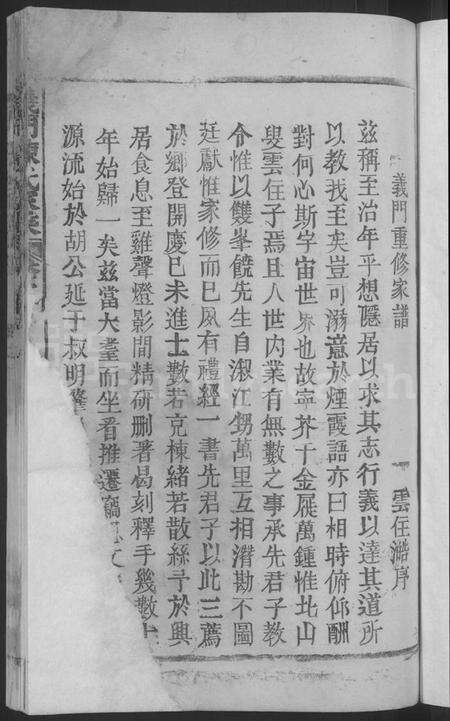 義門重修家譜
雲住澔序
茲稱至治年乎想隱居以求其志行義以達其道所
以教我至矣豈可溺意於煙霞語亦曰相時俯仰酬
對何必斯宇宙世界也故寧芥于金屣萬鍾惟北山
叟雲住子焉且人世內業有無數之事承先君子教
命惟以雙峯饒先生自溆江甥萬里互相潛勘不圖
廷獻惟家修而已夙有禮經一書先君子以此三薦
於鄉登開慶巳未進士數若充棟緒若散絲予於興
居食息至雞聲燈影間精研刪著曷刻釋手幾數十
年始歸一矣茲當大耋而坐看推遷竊
源流始於胡公延于叔明